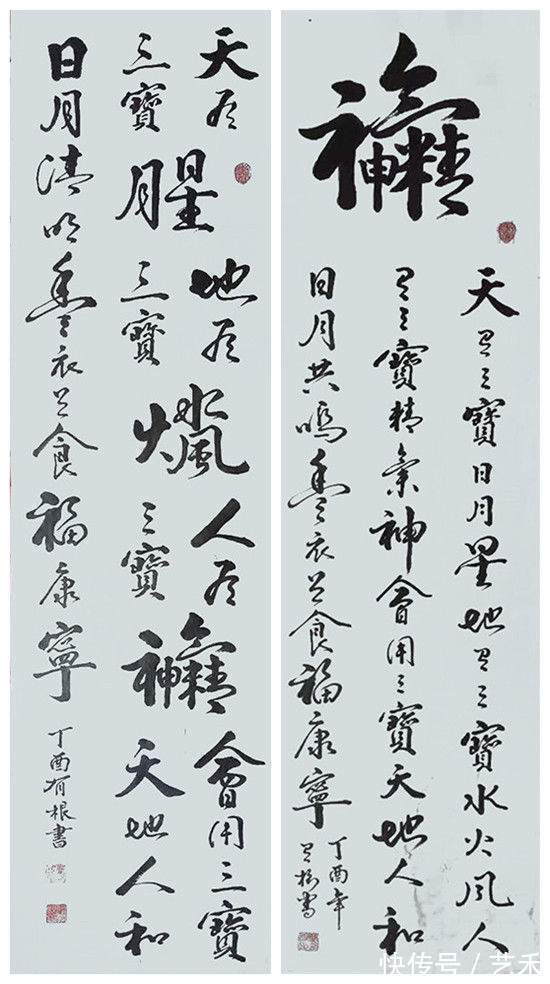 精氣神
天有三寶日月星地有三寶水火風人
有三寶精氣神會用三寶天地人和
日月共鳴豐衣足食福康寧
丁酉年
有根書
天有三寶
日月星
地有三寶
水火風
人有三寶
精氣神
會用三寶
天地人和
日月清明豐衣足食福康寧
丁酉有根書
快传号/艺禾